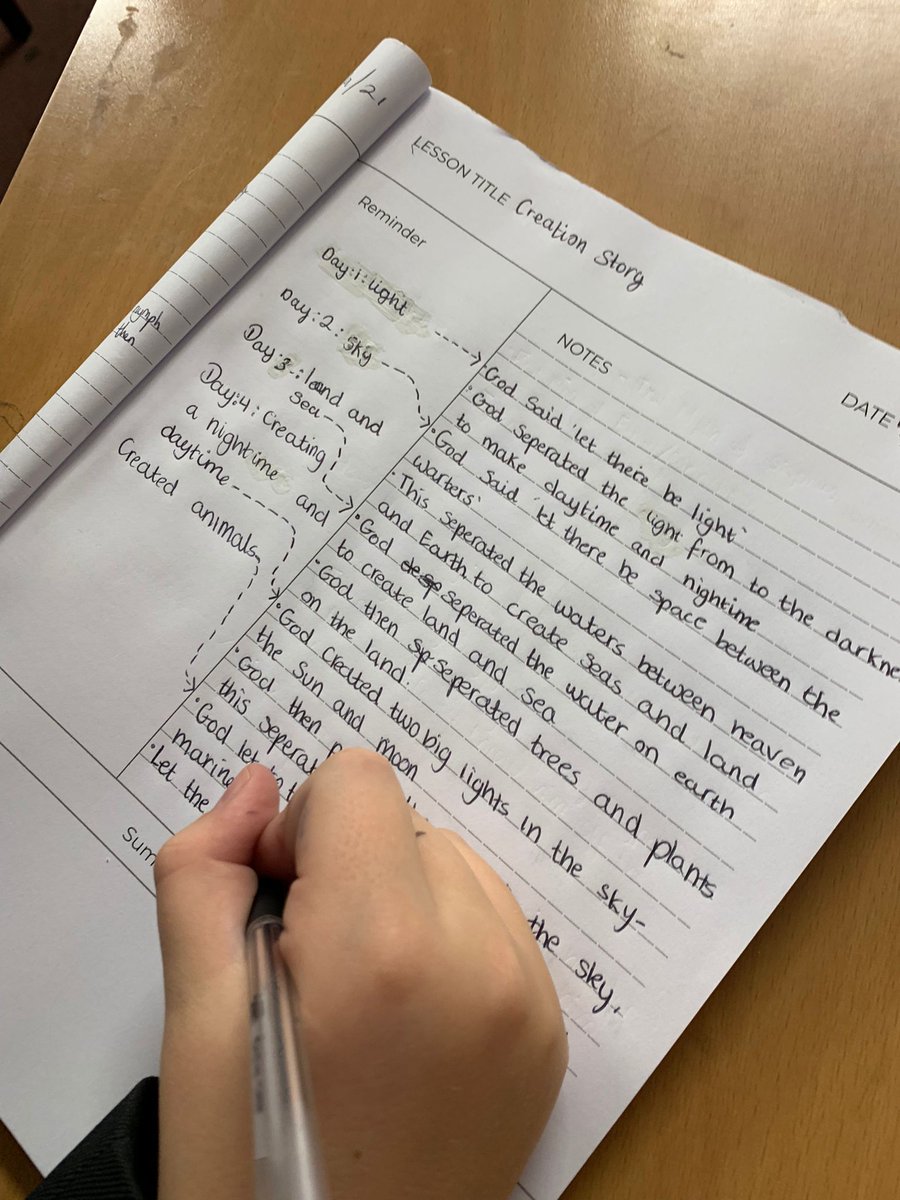 4/21
LESSON TITLE Creation Story
DATE
Reminder
Day:1: light
Day:2: Sky
Day:3-: land and
sea
Day:4: Creating
a nightime and
daytime
Created animals
NOTES
• God said 'let there be light'
• God seperated the light from to the
to make daytime and nightime
• God said 'let there be space between the
warters'
• This seperated the waters between heaven
and Earth to create seas and land
• God seperated the water on earth
to create land and sea
• God then sp seperated trees and plants
on the land.
• God created two big lights in the sky-
the Sun and moon
• God then the sky,
this
• God let
Let the
then